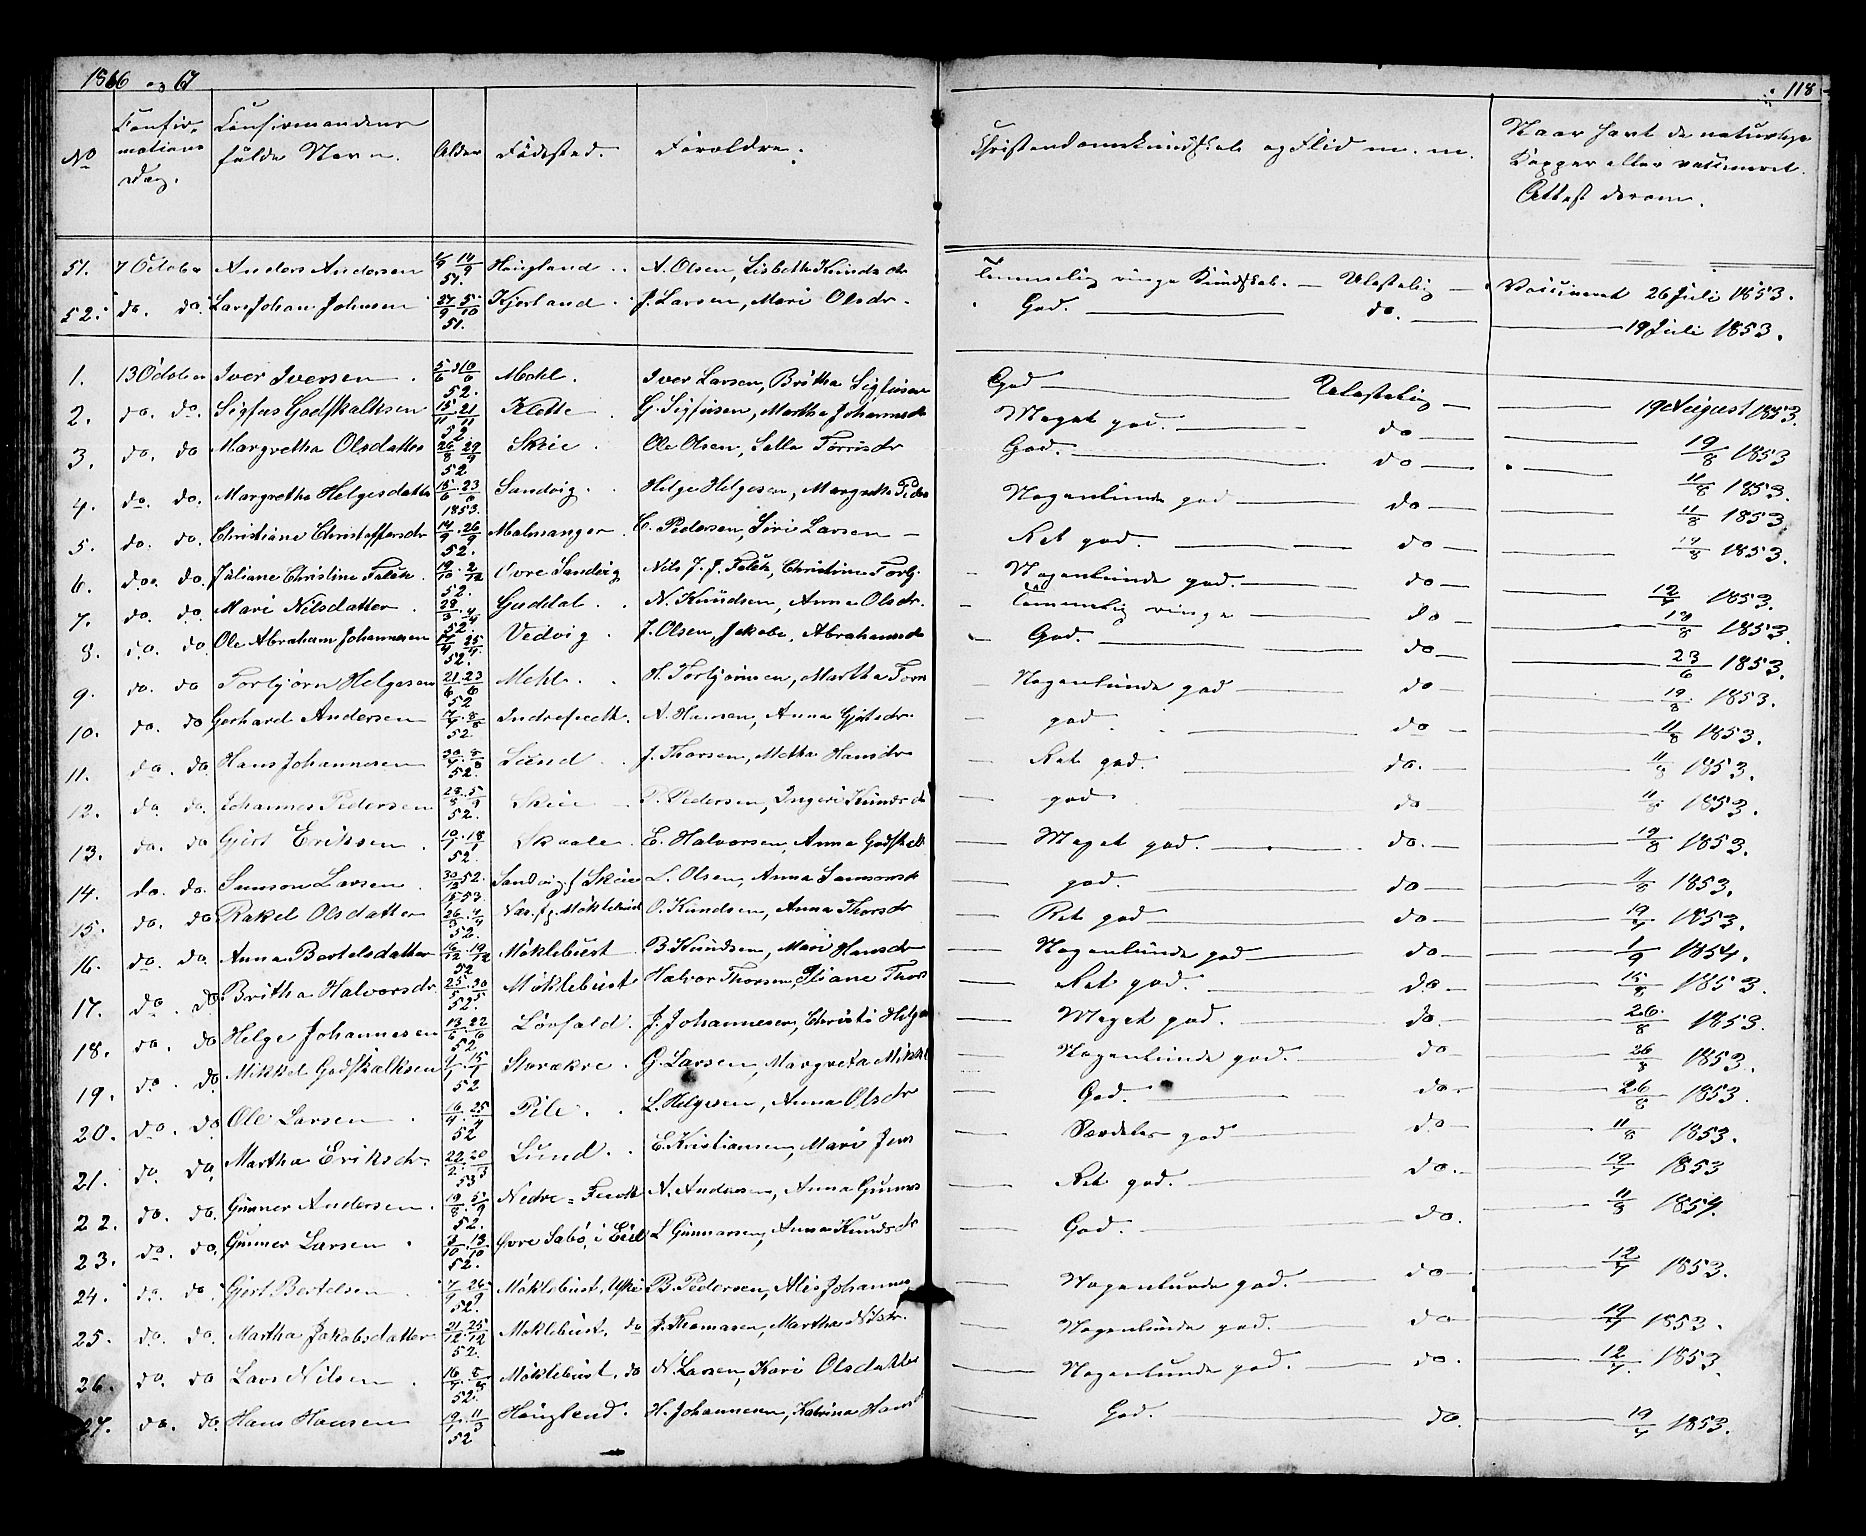 1866 og 67
118
No
Confirmations Dag.
Confirmandens fulde Navn.
Alder
Fødested.
Forældre.
Christendomskundskab og Flid m. m.
Naar havt de naturlige Kopper eller vaccineret. Attest derom.
51. 7 October Anders Andersen 14/9 51. Haugland A. Olsen, Lisbeth Knudsdr Temmelig ringe Kundskab. — Ulastelig — Vaccineret 26 Juli 1853.
52. do. do. Lars Johan Johnsen 5/10 51. Kjerland J. Larsen, Mari Olsdr. God. — do. — 19 Juli 1853.
1. 13 October Iver Iversen 5/6 10/6 52. Mehl. Iver Larsen, Britha Sigfusdr God — Ulastelig — 19 August 1853.
2. do. do. Sigfus Godskalksen 15/11 21/11 52 Klette G. Sigfusen, Martha Johannesdr Meget god. — do — 19/8 1853
3. do. do. Margretha Olsdatter 26/8 29/9 52 Skeie Ole Olsen, Salla Torrisdr God. — do — 11/8 1853.
4. do. do. Margretha Helgesdatter 15/6 23/6 1853. Sandvig. Helge Helgesen, Margretha Peders Nogenlunde god — do — 11/8 1853
5. do. do. Christiane Christoffersdr 14/9 26/9 52. Malmanger. C. Pedersen, Siri Larsen — Ret god. — do — 19/8 1853.
6. do. do. Juliane Christine Falck 19/10 2/12 52. Øvre Sandvig Nils J. J. Falck, Christine Torbj. Nogenlunde god. — do — 12/7 1853.
7. do. do. Mari Nilsdatter 28/3 4/4 52. Guddal N. Knudsen, Anna Olsdr. Temmelig ringe — do — 19/8 1853.
8. do. do. Ole Abraham Johannesen 25/4 52. Vedvig J. Olsen, Jakoba Abrahamsdr God. — do — 23/6 1853.
9. do. do Torbjørn Helgesen 21/6 23/6 52 Mehl H. Torbjørnsen, Martha Torris Nogenlunde god — do — 19/8 1853.
10. do. do Gerhard Andersen 52. Indrefredt. A. Hansen, Anna Gjertsdr. god — do — 11/8 1853.
11. do. do Hans Johannesen 30/7 8/8 52. Lund J. Thorsen, Metha Hansdr Ret god. — do. — 11/8 1853.
12. do do. Johannes Pedersen 52. Skeie P. Pedersen, Ingeri Knudsdr god — do — 11/8 1853.
13. do. do Gjert Eriksen 10/1 18/1 52. Skaale. E. Halvorsen, Anna Godskalk Meget god. — do. — 19/8 1853.
14. do. do. Samson Larsen 30/12 52. 53. Sandvig f. Skeie L. Olsen, Anna Samsonsdr god. — do — 11/8 1853.
15. do. do Rakel Olsdatter 26/3 4/4 52. Vas. f. g. Møklebust O. Knudsen, Anna Thorsdr Ret god — do — 19/7 1853.
16. do. do. Anna Bertelsdatter 16/12 19/12 52 Møklebust B. Knudsen, Mari Hansdr Nogenlunde god — do — 1/9 1854.
17. do. do Britha Halvorsdr. 25/5 30/5 52. Møklebust Halvor Thorsen, Eliane Thors Ret god. — do — 15/8 1853.
18. do. do Helge Johannesen 13/6 22/6 52 Lørfald. J. Johannesen, Christi Helges Meget god. — do. — 26/8 1853.
19. do. do Mikkel Godskalksen 15/1 52 Storakre. G. Larsen, Margreta Mikkel Nogenlunde god. — do — 26/8 1853.
20. do. do Ole Larsen 16/4 25/4 52 Pile. L. Helgesen, Anna Olsdr God. — do — 26/8 1853.
21. do. do. Martha Eriksdr. 22/2 20/3 53 Lund. E. Kristiansen, Mari Jens Særdeles god — do — 11/8 1853.
22. do. do. Gunner Andersen. 19/8 5/9 52. Nedre = Fredt A. Andersen, Anna Gunners Ret god. — do. — 19/7 1853
23. do. do. Gunner Larsen 3/10 13/10 52. Øvre Sabø, i Eid L. Gunnarsen, Anna Knudsdr God. — do. — 11/8 1854.
24. do. do. Gjert Bertelsen 26/9 52. Møklebust, Uskedal B. Pedersen, Alis Johannes Nogenlunde god. — do — 12/7 1853.
25. do. do. Martha Jakobsdatter 21/12 25/12 52. Møklebust. do J. Thomasen, Martha Nilsdr. Nogenlunde god. — do — 19/7 1853.
26. do. do Lars Nilsen 52. Møklebust. do N. Larsen, Kari Olsdatter Nogenlunde god. — do. — 12/7 1853.
27. do. do. Hans Hansen 11/3 52 Hauglend. H. Johannesen, Katrina Hans God. — do. — 19/7 1853.